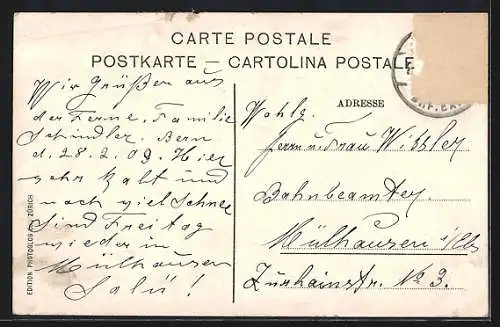 CARTE POSTALE
POSTKARTE — CARTOLINA POSTALE
ADRESSE
Wir Grüßen aus
der Ferne. Familie
Schindler. Bern
d. 28.2.09. Hier
sehr kalt und
noch viel Schnee
Sind Freitag
wieder in
Mülhausen
Salü!
Wohlg.
Herrn u. Frau
Bahnbeamter
Mülhausen i/Els
No 3.
EDITION PHOTOGLOB ZÜRICH